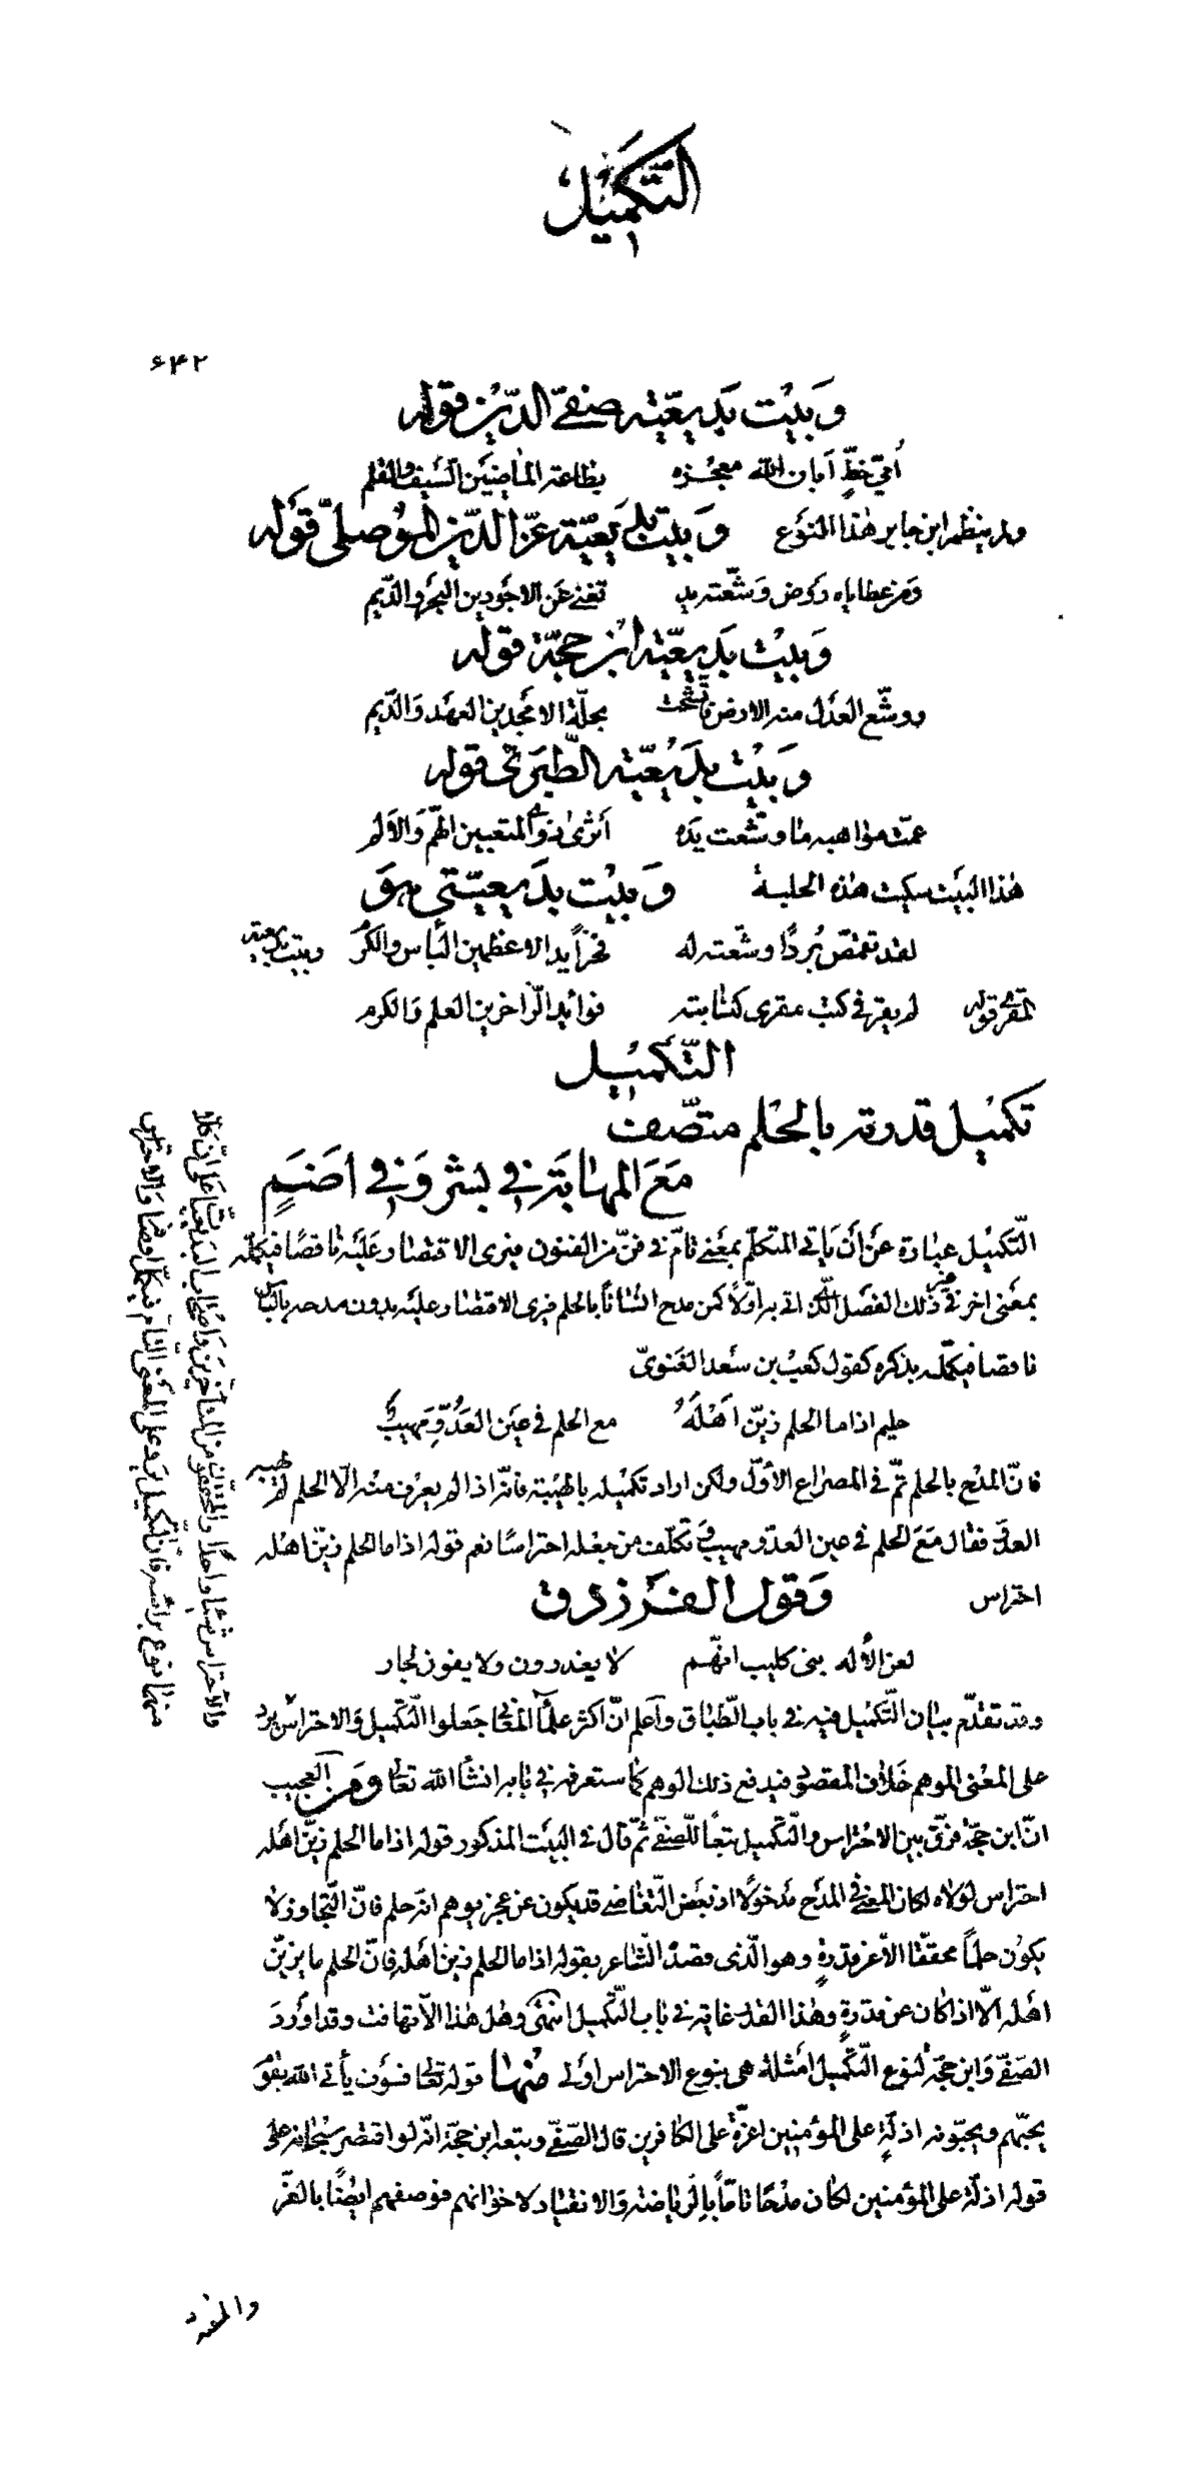 التكميل
۶۴۲
وبيت بديعيّته صفيّ الدّين قوله
اُمّيّ خطٍّ اَبان اللّه معجزه بطاعة الماضيين السّيف والقلم
ولم ينظم ابن جابر هذا النوع وبيت بديعيّة عزّ الدّين الموصليّ قوله
ومن عطاياه روض وشّعته يد تغنى عن الاجودين البحر والدّيم
وبيت بديعيّة ابن حجّة قوله
ووشّع العدل منه الارض فاتّشحت بحلّة الامجدين العهد والدّيم
وبيت بديعيّة الطّبري قوله
عمّت مواهبه ما وشّعت يده اثرى ذوى المتعبين الهمّ والالم
هذا البيت سكيت هذه الحلبة وبيت بديعيّتي هو
لقد تقمّص بُردًا وشّعته له فخرًا يد الاعظمين الباس والكرم وبيت بديعيّة
المقرى قوله لم يقر في كتب مقرى كتابته فوائد الزّاخرين العلم والكرم
التّكميل
تكميل قدرته بالحلم متّصف
مع المهابة في بشر وفي اضم
التّكميل عبارة عن أن يأتي المتكلّم بمعنى تامّ في فنّ من الفنون فيرى الاقتصار عليه ناقصًا فيكمّله
بمعنى اخر في ذلك الفصل الّذى اتى به اوّلًا كمن مدح انسانًا بالحلم فيرى الاقتصار عليه بدون مدحه بالباس
ناقصا فيكمّله بذكره كقول كعب بن سعد الغنويّ
حليم اذا ما الحلم زيّن اَهلَهُ مع الحلم في عين العدوّ مهيب
فانّ المدح بالحلم تمّ في المصراع الأوّل ولكن اراد تكميله بالهيبة فانّه اذا لم يعرف منه الّا الحلم لم يهبه
العدوّ فقال مع الحلم في عين العدوّ مهيب وتكلّف من جعله احتراسًا نعم قوله اذا ما الحلم زيّن اهله
احتراس وقول الفرزدق
لعن الأله بنى كليب انّهم لا يغدرون ولا يفون لجار
وقد تقدّم بيان التّكميل فيه في باب الطّباق واعلم انّ اكثر علماء المعاني جعلوا التّكميل والاحتراس يرد
على المعنى الموهم خلاف المقصود فيدفع ذلك الوهم كما ستعرفه في بابه انشأ اللّه تعالى ومن العجيب
انّ ابن حجّة فرّق بين الاحتراس والتّكميل تبعًا للصّفيّ ثمّ قال في البيت المذكور قوله اذا ما الحلم زيّن اهله
احتراس لولاه لكان المعنى في المدح مدخولًا اذ بعض التّغاضى قد يكون عن عجز يوهم انّه حلم فانّ التّجاوز لا
يكون حلمًا محقّقا الّا عن قدرةٍ وهو الّذى قصده الشّاعر بقوله اذا ما الحلم زين اهله فانّ الحلم ما يزيّن
اهله الّا اذا كان عن قدرةٍ وهذا القدر غاية في باب التّكميل انتهى وهل هذا الّا تهافت وقد اورد
الصّفيّ وابن حجّة لنوع التّكميل امثلة هى بنوع الاحتراس اولى منها قوله تعالى فسوف يأتي اللّه بقوم
يحبّهم ويحبّونه اذلّةٍ على المؤمنين اعزّةٍ على الكافرين قال الصّفيّ وتبعه ابن حجّة انّه لو اقتصر سبحانه على
قوله اذلّة على المؤمنين لكان مدحًا تامًّا بالرياضة والانقياد لاخوانهم فوصفهم ايضًا بالعزّ
والاحتراس شيئا واحدًا والتّحقيق من المتأخّرين واصحاب البديعيّات على انّ كلا
منهما نوع براسه فانّ التّكميل يرد على المعنى التامّ فيكمّل اوصافه والاحتراس